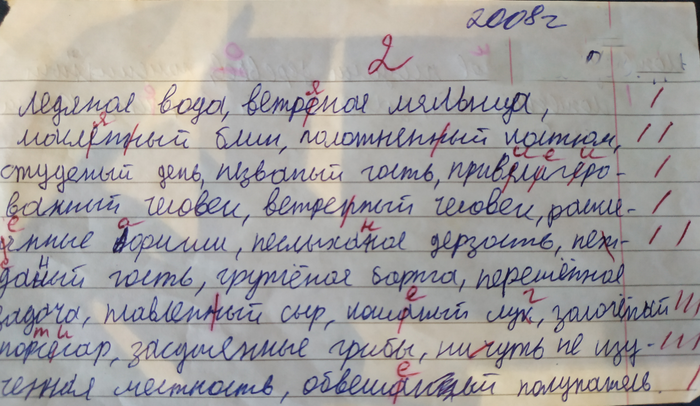 2008г
2
ледяная вода, ветреная мельница,
масленный блин, полотненный костюм,
студеный день, незваный гость, привелигеро-
ванный человек, ветренный человек, раске-
нные неслыханое дерзость, неж-
даний гость, гружёная баржа, нерешённая
задача, плавленный сыр, лук, золочёный
засушенные грибы, ничуть не изу-
ченная местность, обвешанный покупатель.